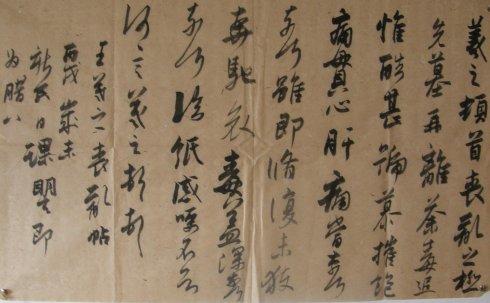 羲之頓首喪亂之極
先墓再離荼毒追
惟酷甚號慕摧絕
痛貫心肝痛當奈何
奈何雖即脩復未獲
奔馳哀毒益深奈何
奈何臨紙感哽不知
何言羲之頓首頓首
王羲之喪亂帖
丙戌歲末
日課 即
為臘八